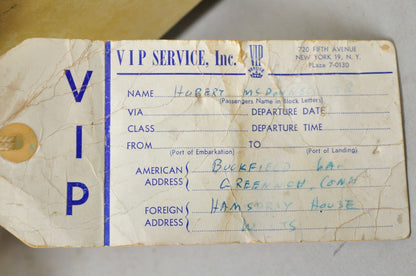 VIP
VIP SERVICE, Inc.
VIP
SERVICE
720 FIFTH AVENUE
NEW YORK 19, N. Y.
PLaza 7-0130
NAME HUBERT
(Passengers Name in Block Letters)
VIA DEPARTURE DATE
CLASS DEPARTURE TIME
FROM TO
(Port of Embarkation) (Port of Landing)
AMERICAN ADDRESS
BUCKFIELD LANE
GREENWICH, CONN
FOREIGN ADDRESS
HOUSE